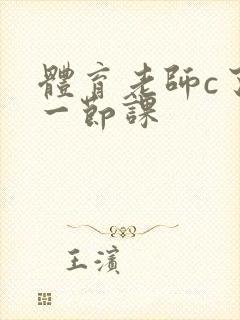 體育老師c了
一節課
王濱